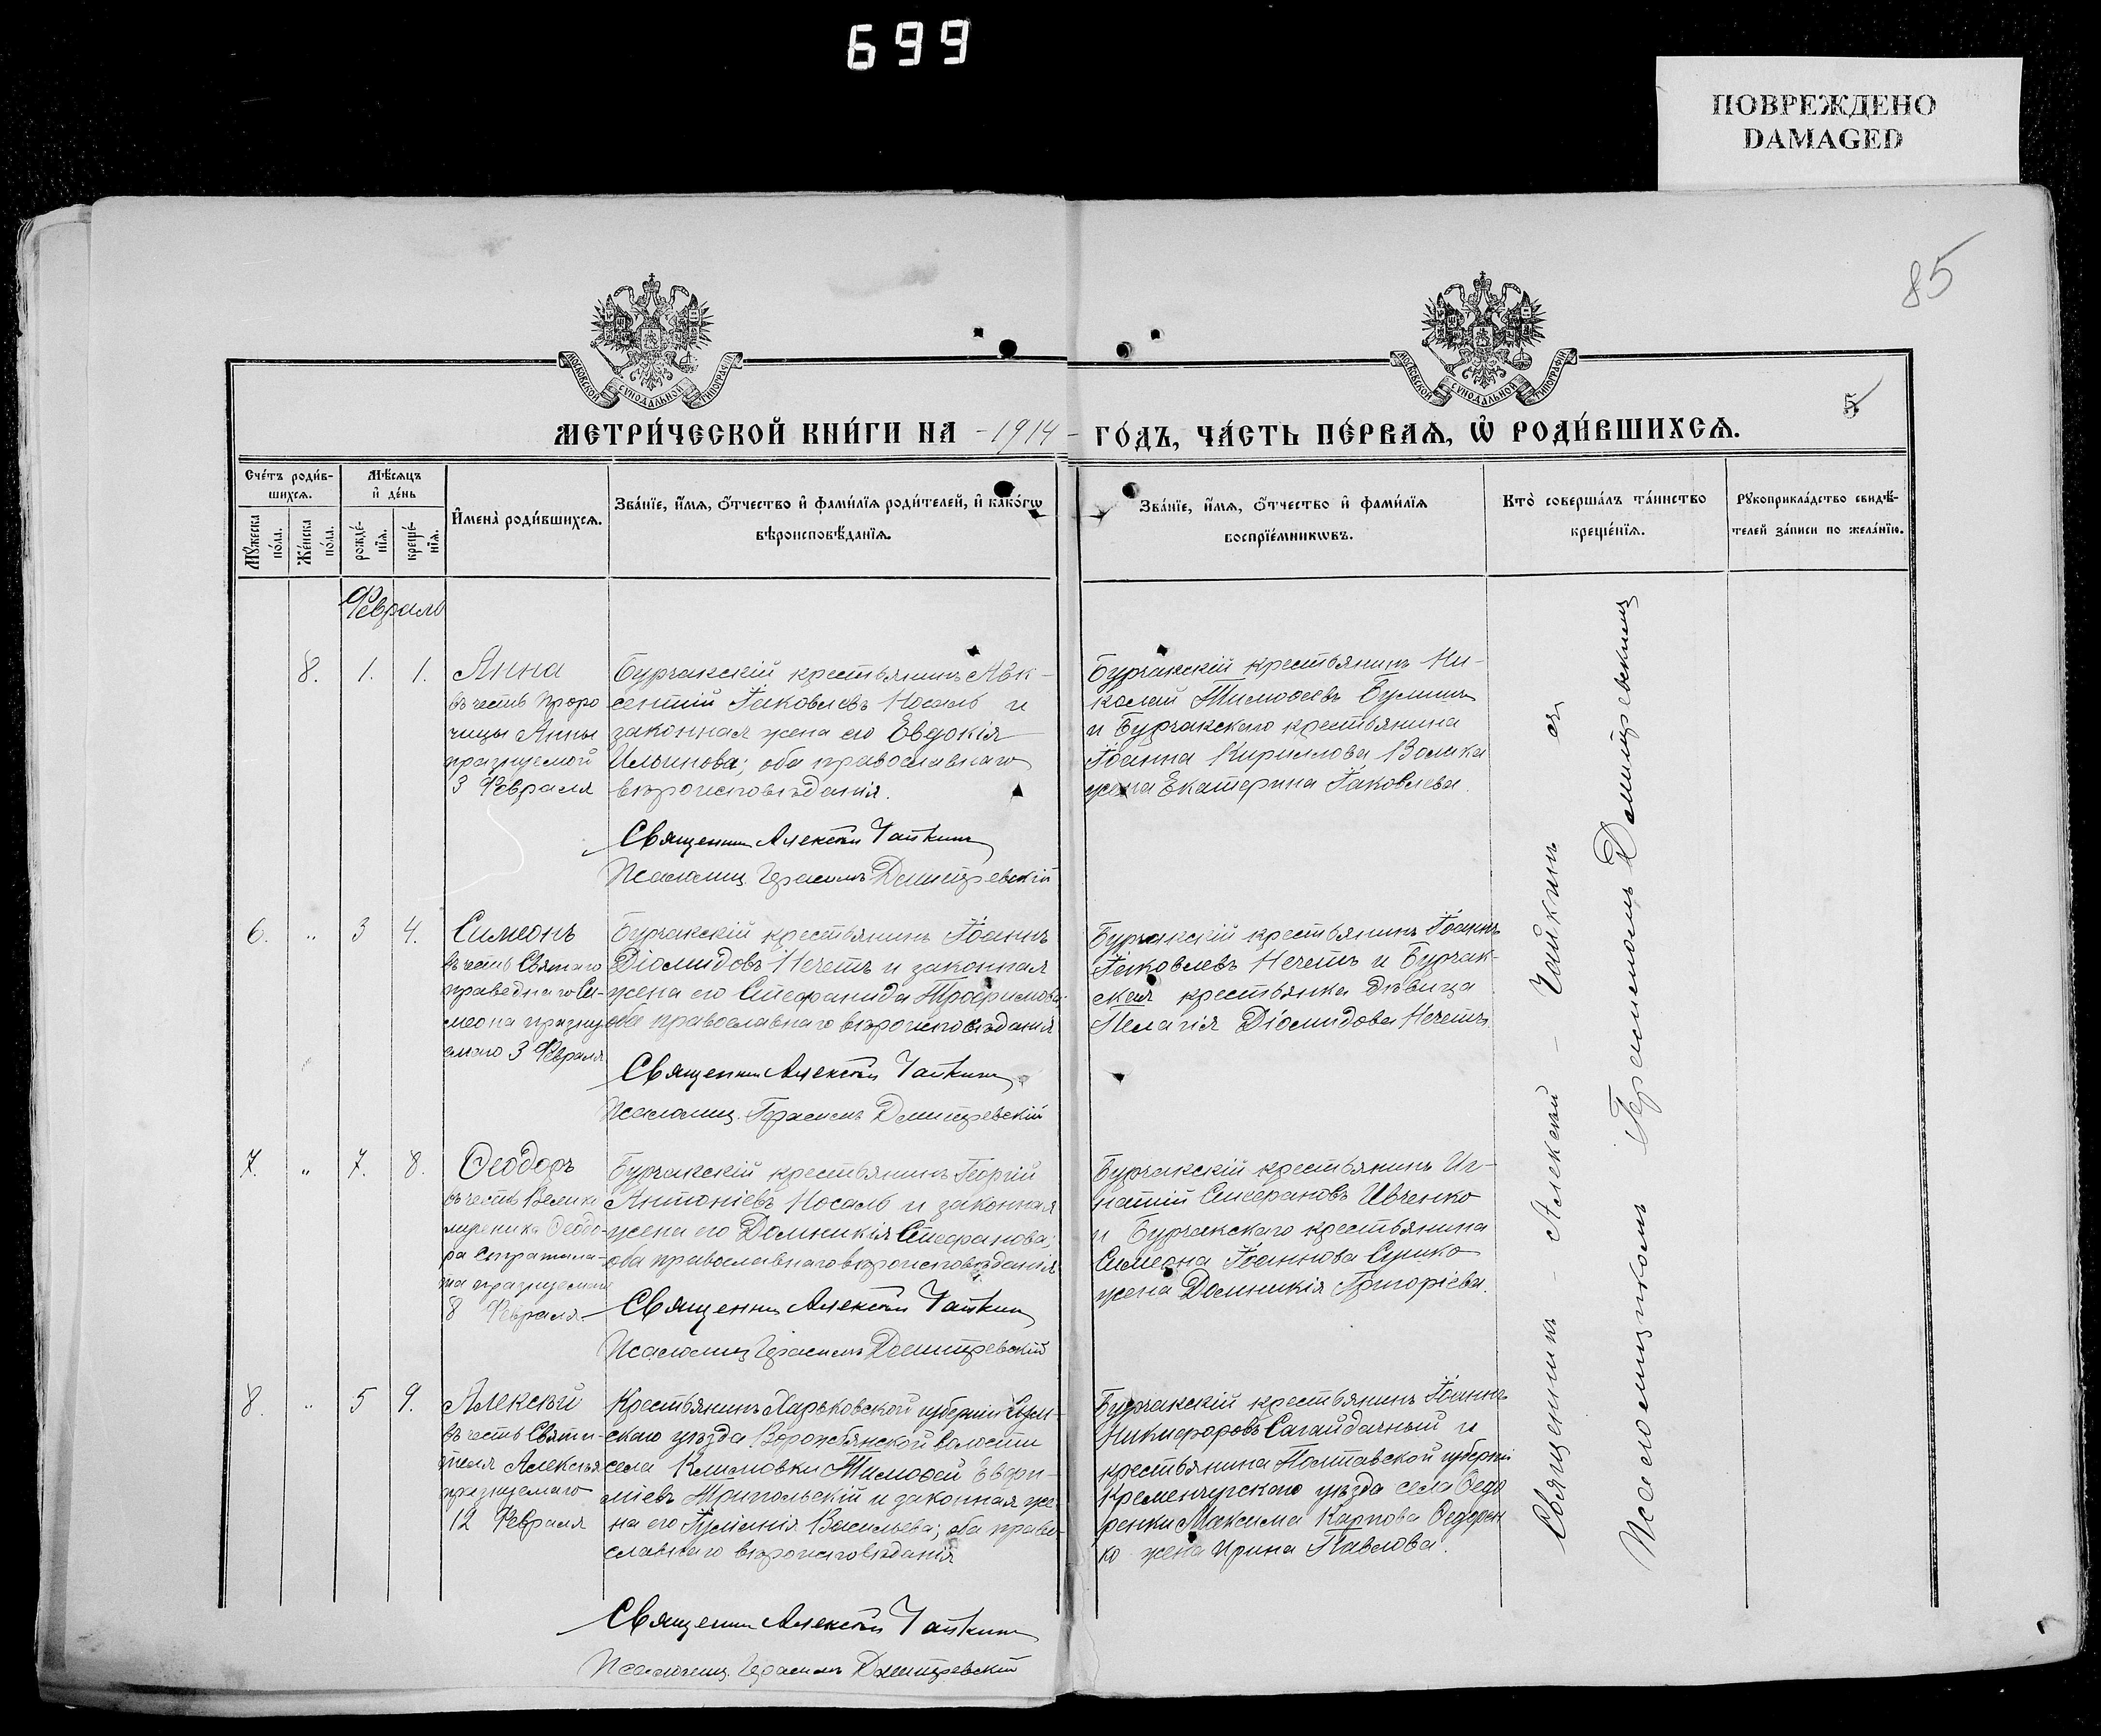 699
ПОВРЕЖДЕНО
DAMAGED
85
МОСКОВСКОЙ СѴНОДАЛЬНОЙ ТИПОГРАФІИ
МОСКОВСКОЙ СѴНОДАЛЬНОЙ ТИПОГРАФІИ
5
МЕТРИ́ЧЕСКОЙ КНИ́ГИ НА -1914- ГО́ДЪ, ЧА́СТЬ ПЕ́РВАѦ, Ѡ҆ РОДИ́ВШИХСѦ.
Сче́тъ роди́в-
шихсѧ.
Мѣ́сѧцъ
и҆ де́нь
Мꙋ́жеска
по́ла.
Же́нска
по́ла.
рожде́-
нїѧ.
креще́-
нїѧ.
И҆мена̀ роди́вшихсѧ.
Зва́нїе, и҆́мѧ, ѻ҆́тчество и҆ фами́лїѧ роди́телей, и҆ како́гѡ
вѣроисповѣ́данїѧ.
Зва́нїе, и҆́мѧ, ѻ҆́тчество и҆ фами́лїѧ
воспрїе́мникѡвъ.
Кто̀ соверша́лъ та́инство
креще́нїѧ.
Рꙋкоприкла́дство свидѣ́-
телей за́писи по жела́нїю.
Февраль
8. 1. 1.
Анна
въ честь проро
чицы Анны
празнуемой
3 Февраля
Бурчакскій крестьянинъ Авк-
сентій Іаковлевъ Носаль и
законная жена его Евдокія
Ильинова; оба православнаго
вѣроисповѣданія.
Священник Алексѣй Чайкинъ
Псаломщ. Герасимъ Дмитревскій
Бурчакскій крестьянинъ Ни-
колай Тимоѳеевъ
и Бурчакскаго крестьянина
Іоанна Кириллова Волика
жена Екатерина Іаковлева.
6. „ 3 4.
Симеонъ
въ честь Святаго
праведнаго Си-
меона празну
емаго 3 Февраля
Бурчакскій крестьянинъ Іоаннъ
Діомидовъ Нечетъ и законная
жена его Стефанида Трофимова;
оба православнаго вѣроисповѣданія
Священник Алексѣй Чайкинъ
Псаломщ. Герасимъ Дмитревскій
Бурчакскій крестьянинъ Іоаннъ
Іаковлевъ Нечетъ и Бурчак-
ская крестьянка дѣвица
Пелагія Діомидова Нечетъ.
7. „ 7. 8.
Ѳеодоръ
въ честь Велико
мученика Ѳеодо-
ра Стратила-
та празнуемаго
8 Февраля
Бурчакскій крестьянинъ Георгій
Антоніевъ Носаль и законная
жена его Домникія Стефанова;
оба православнаго вѣроисповѣданія
Священник Алексѣй Чайкин
Псаломщ. Герасимъ Дмитревскій
Бурчакскій крестьянинъ Иг-
натій Стефановъ Ивченко
и Бурчакскаго крестьянина
Симеона Іоаннова Сушко
жена Домникія Григоріева.
8. „ 5 9.
Алексѣй
въ честь Святи-
теля Алексѣя
празнуемаго
12 Февраля
Крестьянинъ Харьковской губерніи Сум-
скаго уѣзда Ворожбянской волости
села Климовки Тимоѳей Евфи-
міевъ Трипольскій и законная же-
на его Іуліанія Васильева; оба право-
славнаго вѣроисповѣданія
Священник Алексѣй Чайкинъ
Псаломщ. Герасимъ Дмитревскій
Бурчакскій крестьянинъ Іоаннъ
Никифоровъ Сагайдачный и
крестьянина Полтавской губерніи
Кременчугскаго уѣзда села Ѳедо
ренки Максима Карпова Ѳедорен
ко жена Ирина Павлова.
Священникъ - Алексѣй - Чайкинъ съ
Псаломщикомъ Герасимомъ Дмитревскимъ